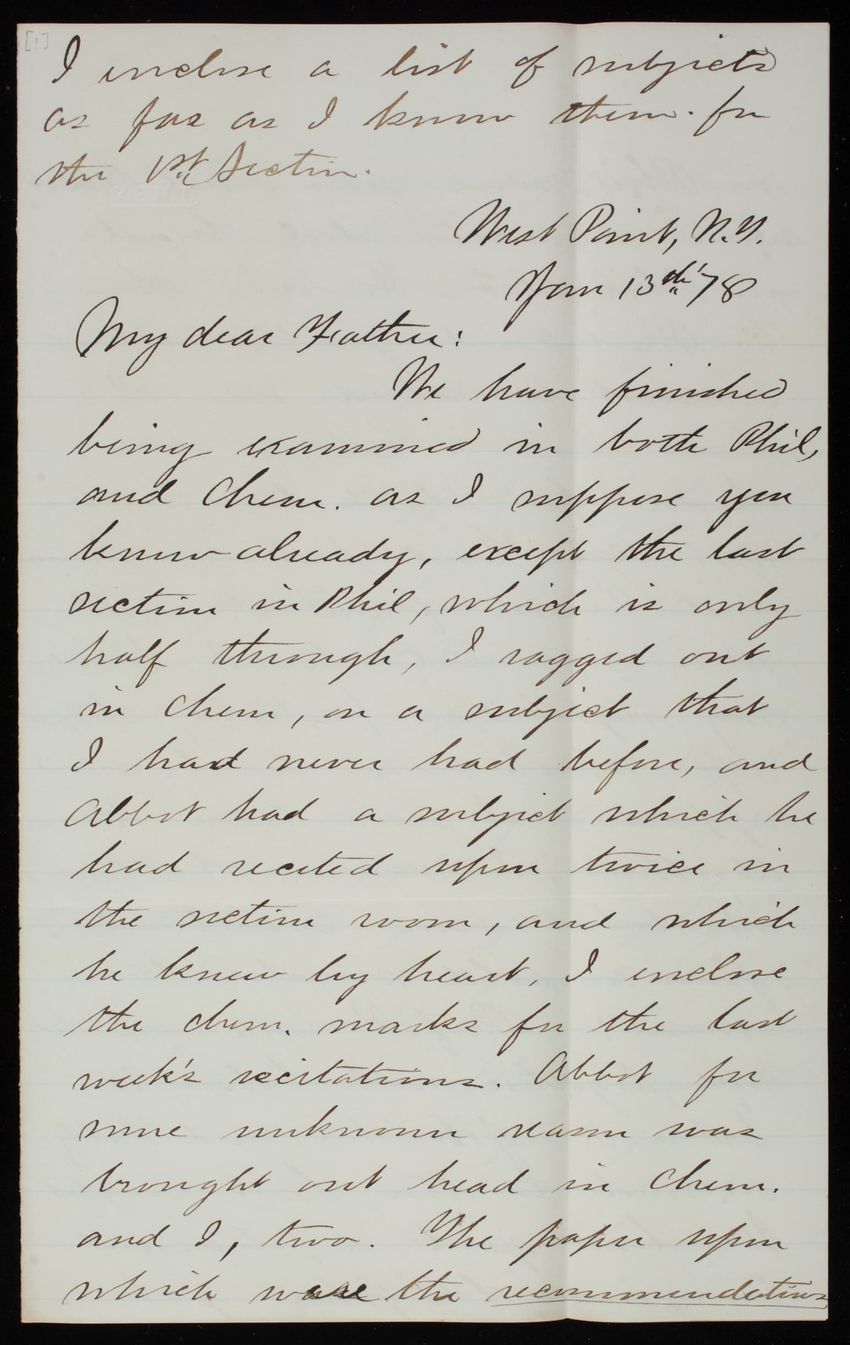 [1]
I inclose a list of subjects
as far as I know them. for
the 1st Section.
West Point, N.Y.
Jan 13th '78
My dear Father:
We have finished
being examined in both Phil,
and Chem. as I suppose you
know already, except the last
section in Phil, which is only
half through, I ragged out
in Chem, on a subject that
I had never had before, and
Abbot had a subject which he
had recited upon twice in
the section room, and which
he knew by heart, I inclose
the chem. marks for the last
week's recitations. Abbot for
some unknown reason was
brought out head in Chem.
and I, two. The paper upon
which were the recommendations